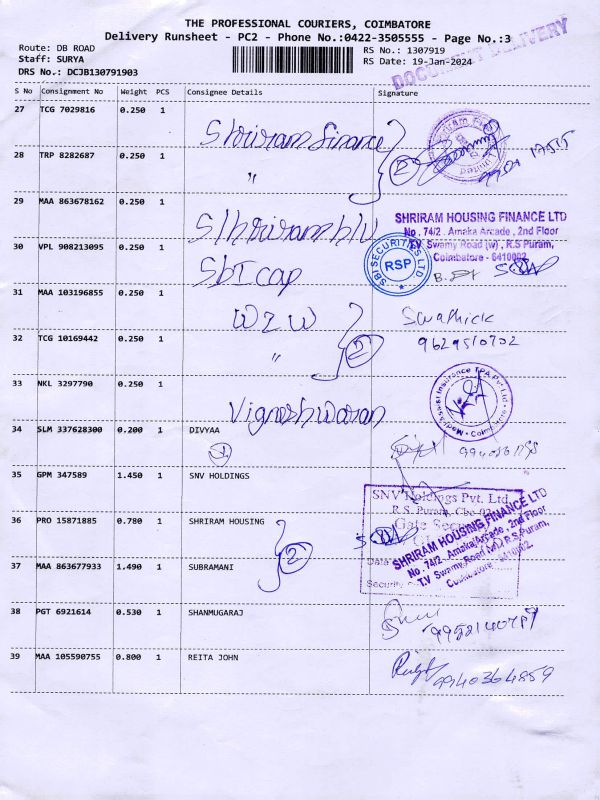 THE PROFESSIONAL COURIERS, COIMBATORE
Delivery Runsheet - PC2 - Phone No.:0422-3505555 - Page No.:3
Route: DB ROAD
Staff: SURYA
DRS No.: DCJB130791903
RS No.: 1307919
RS Date: 19-Jan-2024
DOCUMENT DELIVERY
S No Consignment No Weight PCS Consignee Details Signature
27 TCG 7029816 0.250 1 Shriram finance
28 TRP 8282687 0.250 1 " 2
29 MAA 863678162 0.250 1
SHRIRAM HOUSING FINANCE LTD
No. 74/2. Amaka Arcade, 2nd Floor
T.V Swamy Road (w), R.S Puram,
Coimbatore - 6410002
30 VPL 908213095 0.250 1 SbI cap
SBI SECURITIES LTD
RSP
31 MAA 103196855 0.250 1 W2W
32 TCG 10169442 0.250 1 " 2
9629510702
33 NKL 3297790 0.250 1 Vigneshwaran
Coimbatore
34 SLM 337628300 0.200 1 DIVYAA
35 GPM 347589 1.450 1 SNV HOLDINGS
SNV Holdings Pvt. Ltd
R.S. Puram, Cbe-02
36 PRO 15871885 0.780 1 SHRIRAM HOUSING
SHRIRAM HOUSING FINANCE LTD
No. 74/2. Amaka Arcade, 2nd Floor
T.V Swamy Road (w), R.S Puram,
Coimbatore - 6410002
37 MAA 863677933 1.490 1 SUBRAMANI
2
38 PGT 6921614 0.530 1 SHANMUGARAJ
39 MAA 105590755 0.800 1 REITA JOHN
9940364859